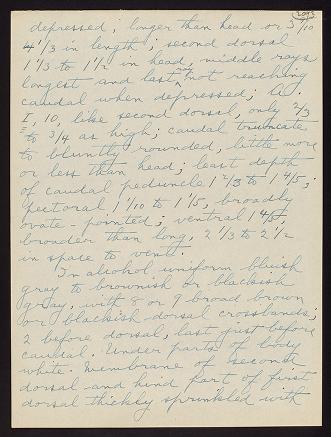 2093
depressed, longer than head or 3 9/10
4 1/3 in length; second dorsal
1 1/3 to 1 1/2 in head, middle rays
longest and last not reaching
caudal when depressed; A.
I, 10, like second dorsal, only 2/3
to 3/4 as high; caudal truncate,
to bluntly rounded, little more
or less than head; least depth
of caudal peduncle 1 2/3 to 1 4/5;
pectoral 1 1/10 to 1 1/5, broadly
ovate-pointed; ventral 1 4/5,
broader than long, 2 1/3 to 2 1/2
in space to vent.
In alcohol uniform bluish
gray to brownish or blackish
gray, with 8 or 9 broad brown
or blackish dorsal crossbands;
2 before dorsal, last just before
caudal. Under parts of body
white. Membrane of second
dorsal and hind part of first
dorsal thickly sprinkled with